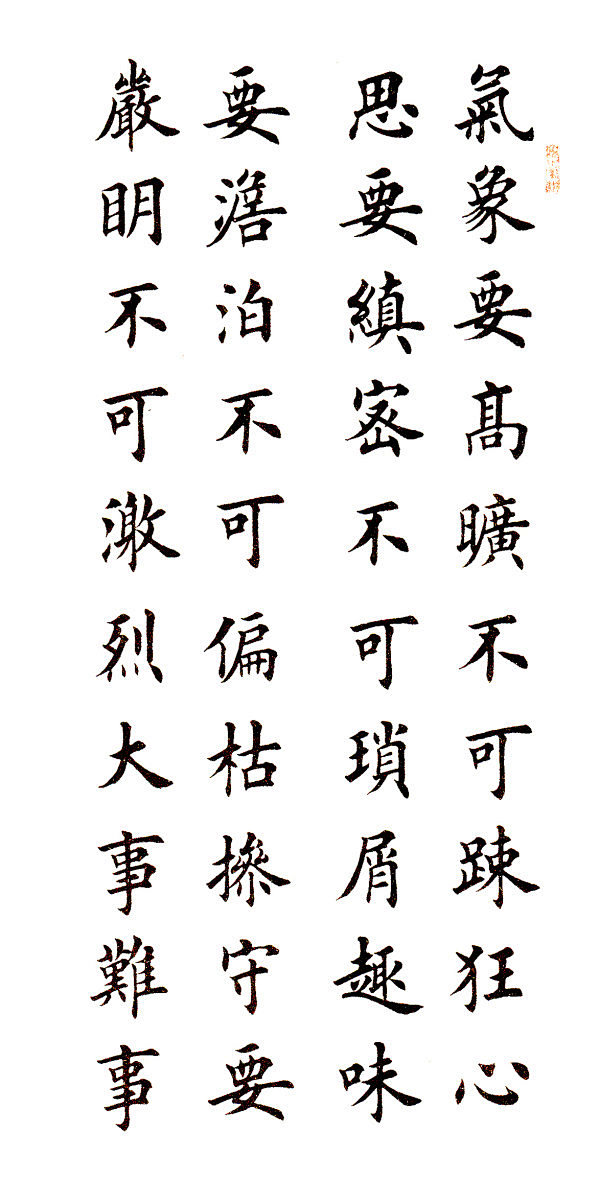 氣象要髙曠不可踈狂心
思要縝宻不可瑣屑趣味
要澹泊不可偏枯摻守要
嚴眀不可激烈大事難事